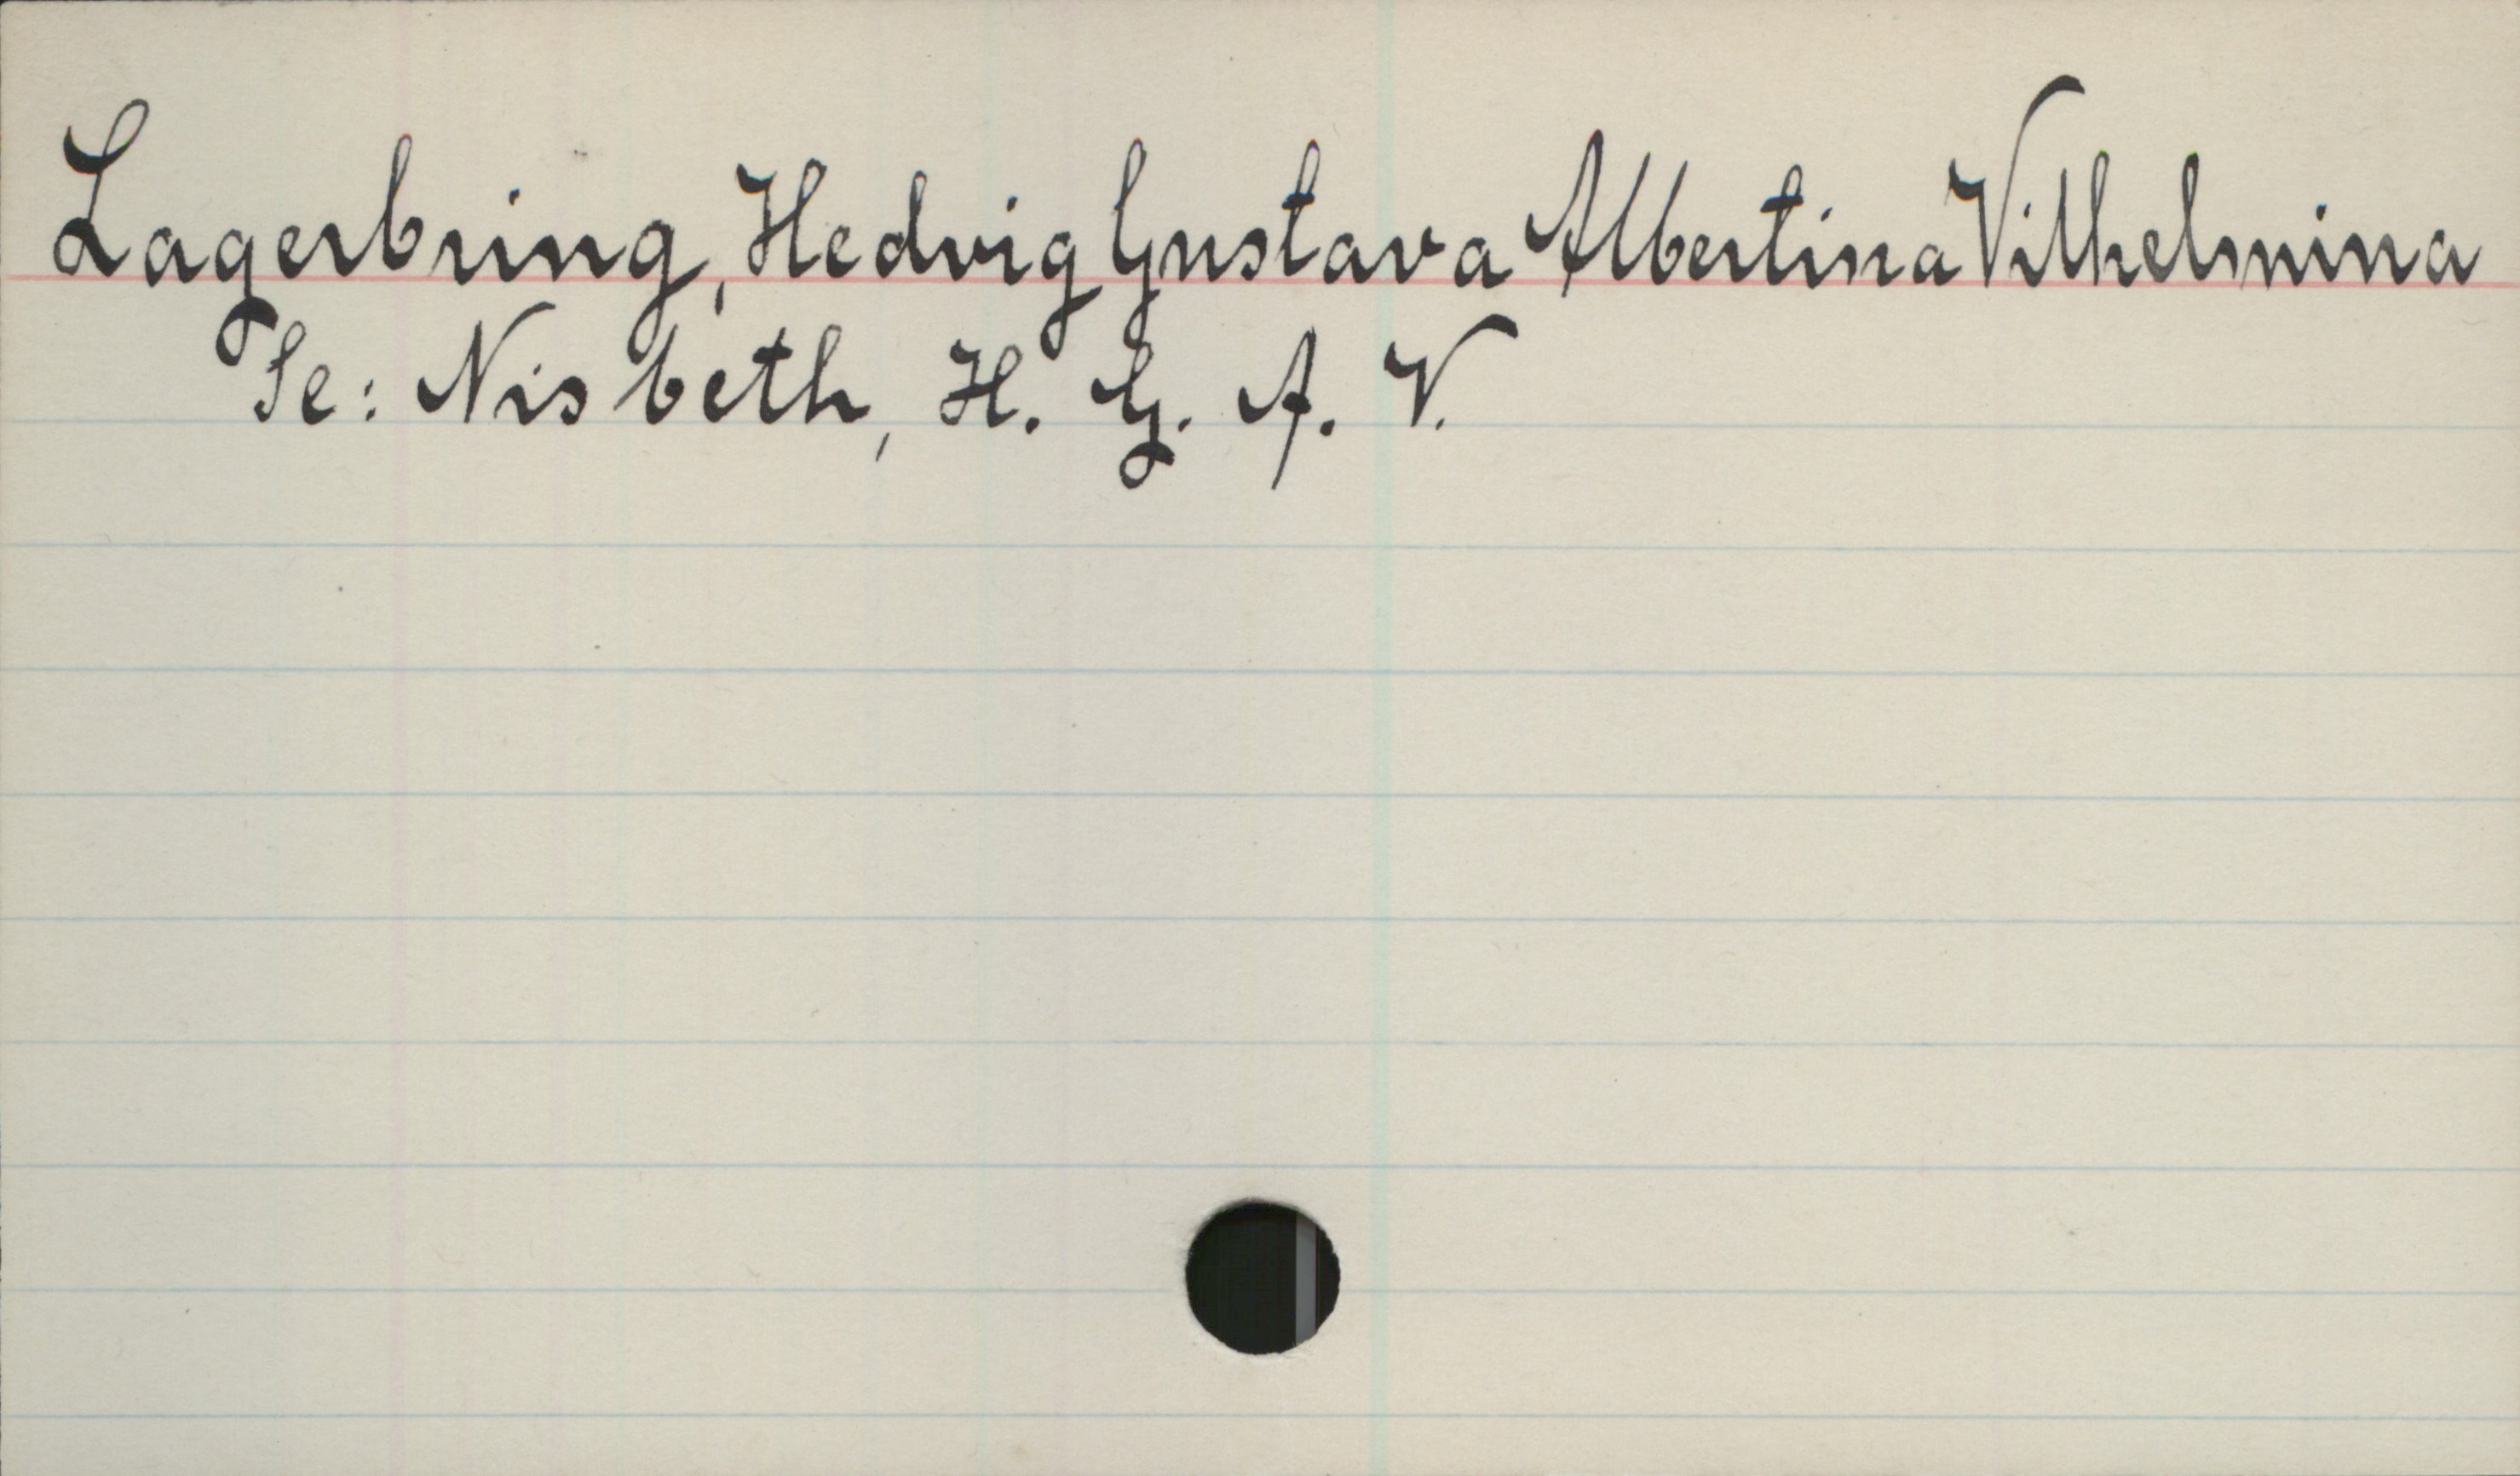 Lagerbring, Hedvig Gustava Albertina Vilhelmina
Se: Nisbeth, H. G. A. V.